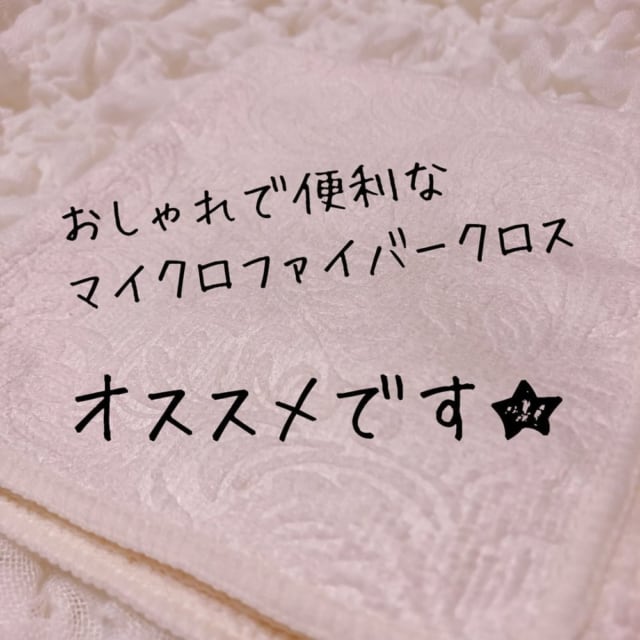 おしゃれで便利な
マイクロファイバークロス
オススメです★